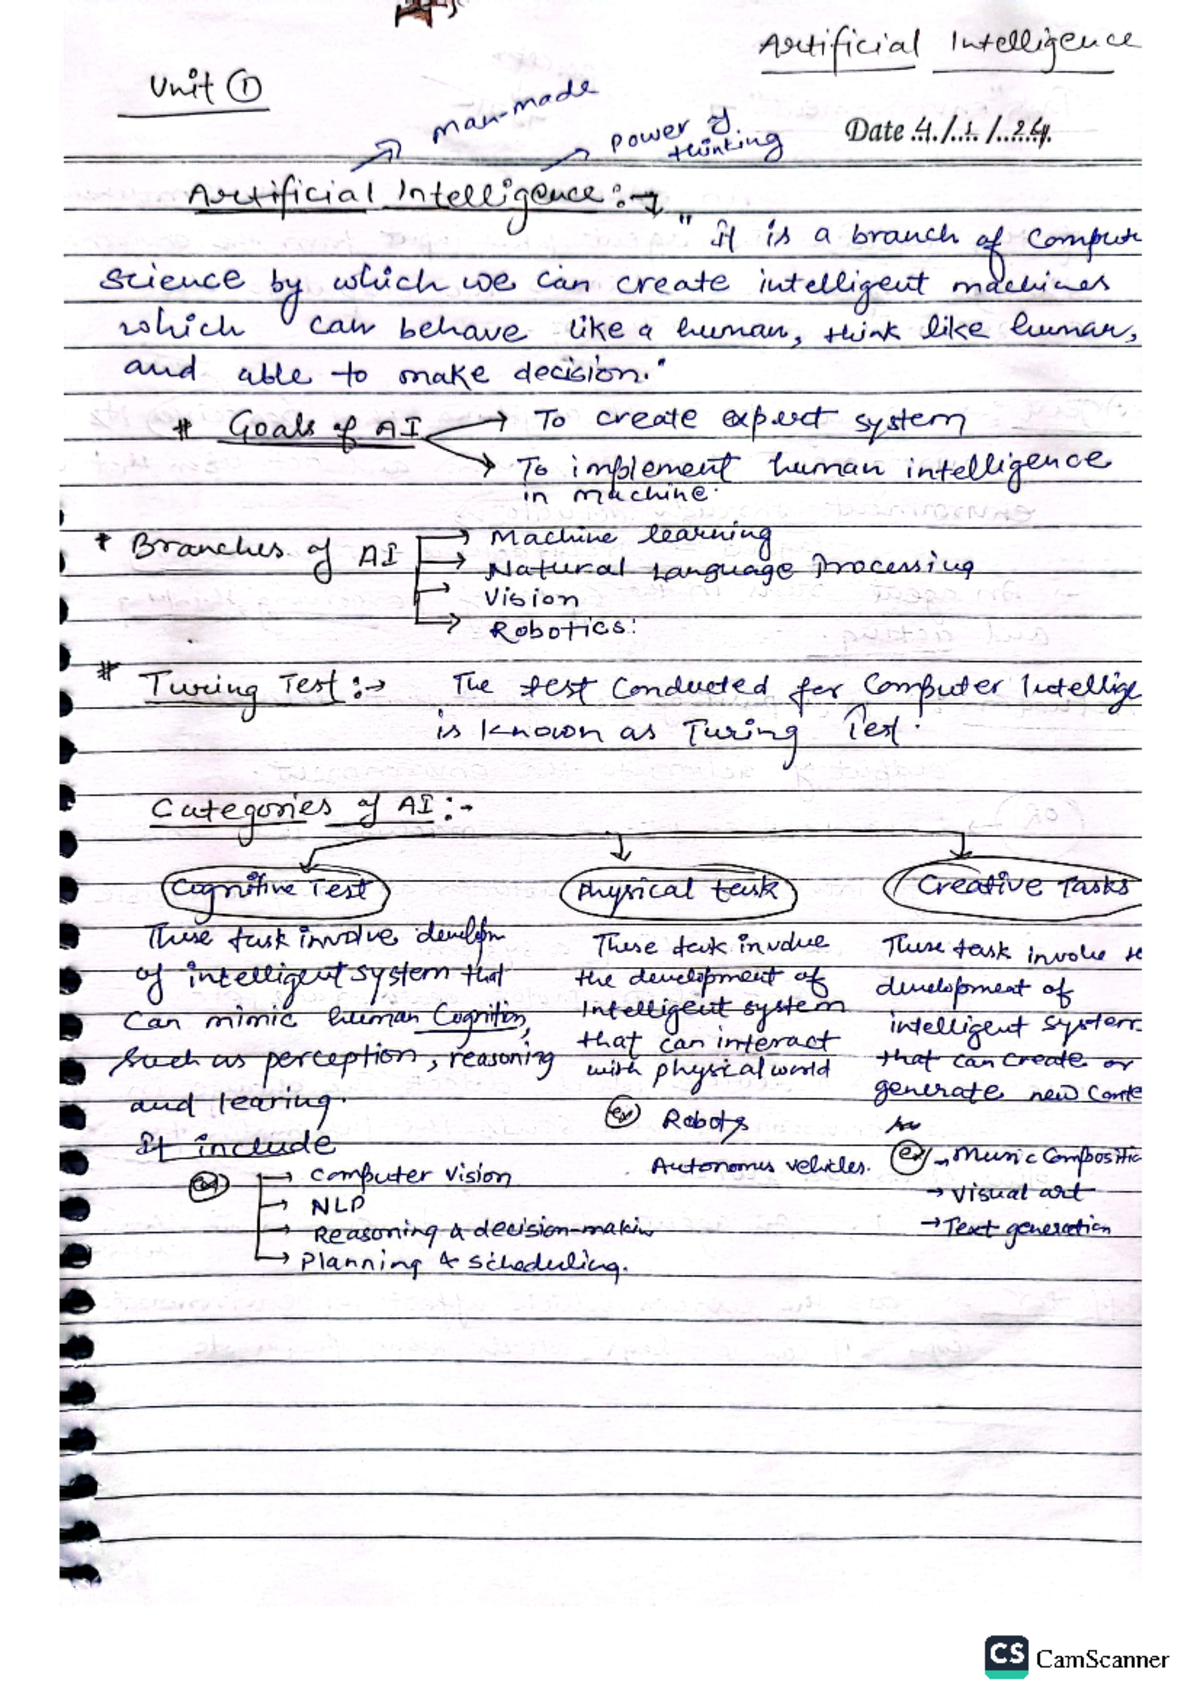 Artificial Intelligence
Unit ①
man-made
power of thinking
Date 4/1/24
Artificial Intelligence :→
" it is a branch of Compute
science by which we can create intelligent machines
which can behave like a human, think like human,
and able to make decision."
# Goals of AI → To create expert system
→ To implement human intelligence
in machine.
* Branches of AI → Machine learning
→ Natural Language Processing
→ Vision
→ Robotics.
# Turing Test :→ The test conducted for Computer Intellige
is known as Turing Test.
Categories of AI :-
Cognitive Test
These task involve developm
of intelligent system that
Can mimic human Cognition,
Such as perception, reasoning
and learing.
It include
ex → Computer Vision
→ NLP
→ Reasoning & decision-makin
→ Planning & Scheduling.
Physical task
These task involve
the development of
Intelligent system
that can interact
with physical world
ex Robots
Autonomus vehicles.
Creative Tasks
These task involve
development of
intelligent system
that can create or
generate new Conte
ex → Music Compositio
→ Visual art
→ Text generation
CS CamScanner